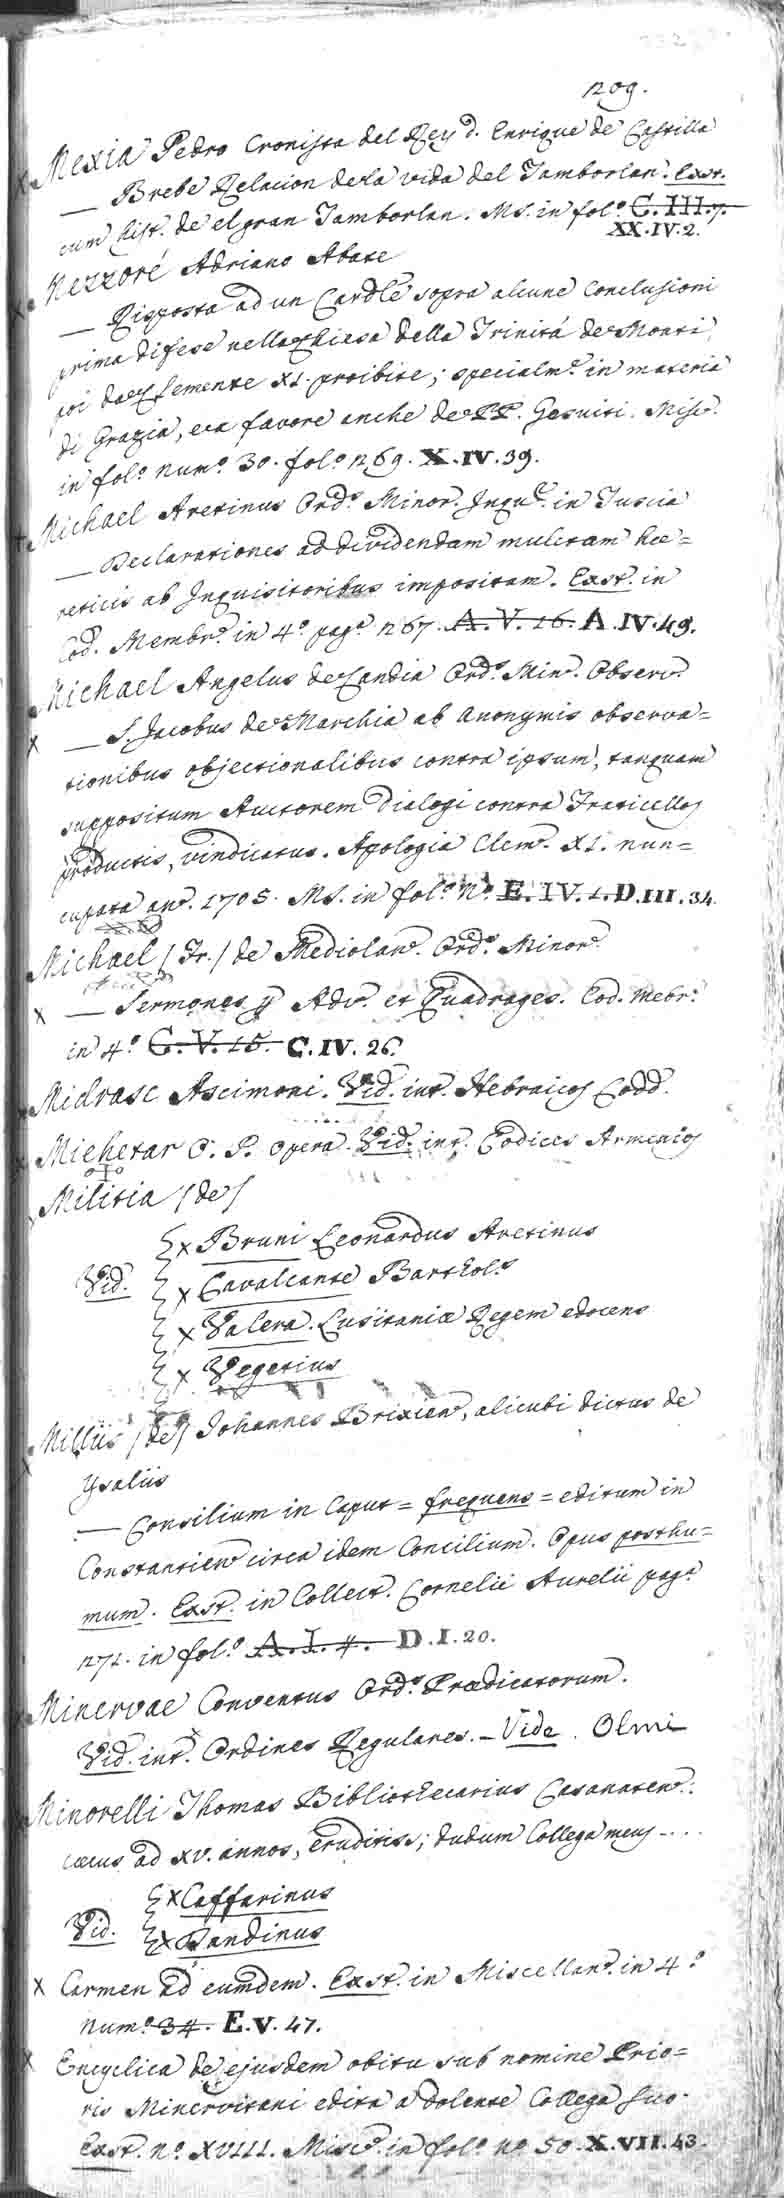 129.
Mexia Pedro Cronista del Rey d. Enrique de Castilla
— Brebe Relacion de la vida del Tamborlan. Exst.
cum hist. de el gran Tamborlan. MS. in fol.º C. III. 7.
XX. IV. 2.
Mezzoré Adriano Abate
— Risposta ad un Cardle sopra alcune Conclusioni
prima difese nella Chiesa della Trinitá de Monti,
poi da Clemente XI. proibite; specialm.e in materia
di Grazia, e a favore anche de PP. Gesuiti. Misc.
in fol.º num.º 30. fol.º 169. X. IV. 39.
Michael Aretinus Ord.s Minor. Inqu.r in Tuscia
— Declarationes ad dividendam mulctam hæ=
reticis ab Inquisitoribus impositam. Exst. in
Cod. Membr.º in 4.º pag.a 167. A. V. 16. A. IV. 49.
Michael Angelus de Candia Ord.s Min. Observ.
— S. Jacobus de Marchia ab anonymis observa=
tionibus objectionalibus contra ipsum, tanquam
suppositum Auctorem Dialogi contra Fraticellos
productis, vindicatus. Apologia Clem. XI. nun=
cupata an. 1705. MS. in fol.º N.º E. IV. 1. D. III. 34.
Michael (Fr.) de Mediolan. Ord.s Minor.
— Sermones p Adv. et Quadrages. Cod. Mebr.
in 4.º C. V. 15. C. IV. 26.
Midrasc Ascimoni. Vid. int. Hebraicos Codd.
Miehetar O. P. Opera. Vid. int. Codices Armenios
Militia (de)
x Bruni Leonardus Aretinus
Vid. x Cavalcante Barthol.s
x Valera. Lusitaniæ Regem edocens
x Vegetius
Milliis (de) Johannes Brixien, alicubi dictus de
Ysaliis
— Consilium in Caput = frequens = editum in
Constantien circa idem Concilium. Opus posthu=
mum. Exst. in Collect. Cornelii Aurelii pag.a
171. in fol.º A. I. 4. D. I. 20.
Minervae Conventus Ord.s Prædicatorum.
Vid. int. Ordines Regulares. – Vide. Olmi
Minorelli Thomas Bibliothecarius Casanaten.
cæcus ad XV. annos, eruditiss; dudum Collega meus – ...
x Caffarinus
Vid.
x Dandinus
x Carmen ad eumdem. Exst. in Miscellan. in 4.º
Num.º 34. E. V. 47.
x Encyclica de ejusdem obitu sub nomine Prio=
ris Minervitani edita a dolente Collega suo.
Exst. n.º XVIII. Misc. in fol.º n.º 50. X. VII. 43.